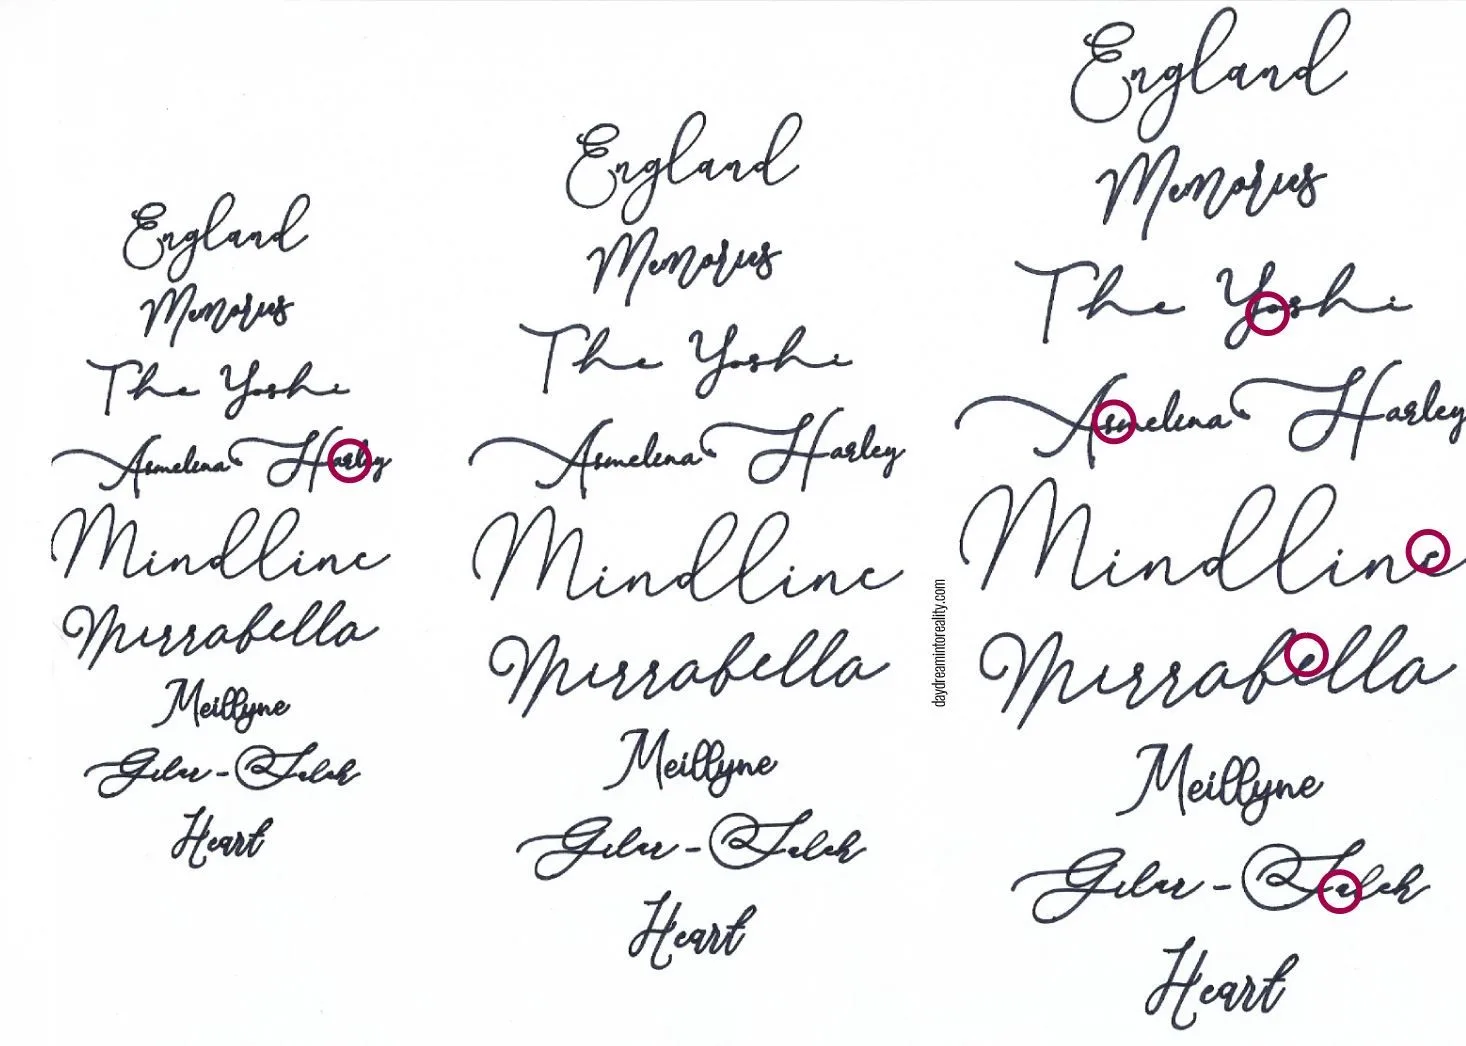 England
Memories
The Yoshi
Asmelina Harley
Mindline
Mirrabella
Meillyne
Gilar - Saleh
Heart
England
Memories
The Yoshi
Asmelina Harley
Mindline
Mirrabella
Meillyne
Gilar - Saleh
Heart
daydreamintoreality.com
England
Memories
The Yoshi
Asmelina Harley
Mindline
Mirrabella
Meillyne
Gilar - Saleh
Heart